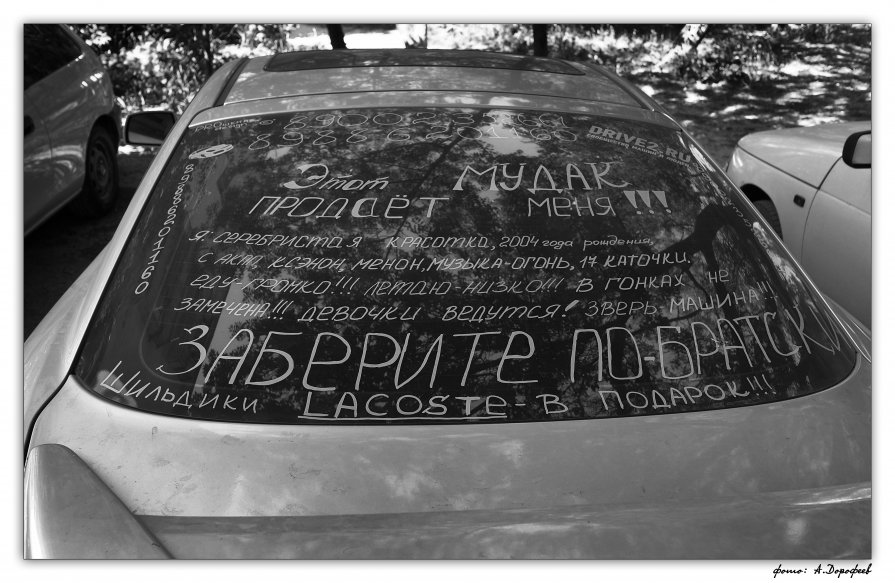 DRIVE2.RU
89886201160
Этот МУДАК
ПРОДАЁТ МЕНЯ!!!
Я: СЕРЕБРИСТАЯ КРАСОТКА, 2004 года рождения,
С АКП, КСЭНОН, МЕНОН, МУЗЫКА-ОГОНЬ, 17 КАТОЧКИ.
ЕДУ-ГРОМКО!!! ЛЕТАЮ-НИЗКО!!! В ГОНКАХ НЕ
ЗАМЕЧЕНА!!! ДЕВОЧКИ ВЕДУТСЯ! ЗВЕРЬ МАШИНА!!!
ЗАБЕРИТЕ ПО-БРАТСКИ
ШИЛЬДИКИ LACOSTE-В ПОДАРОК!!!
фото: А.Дорофеев